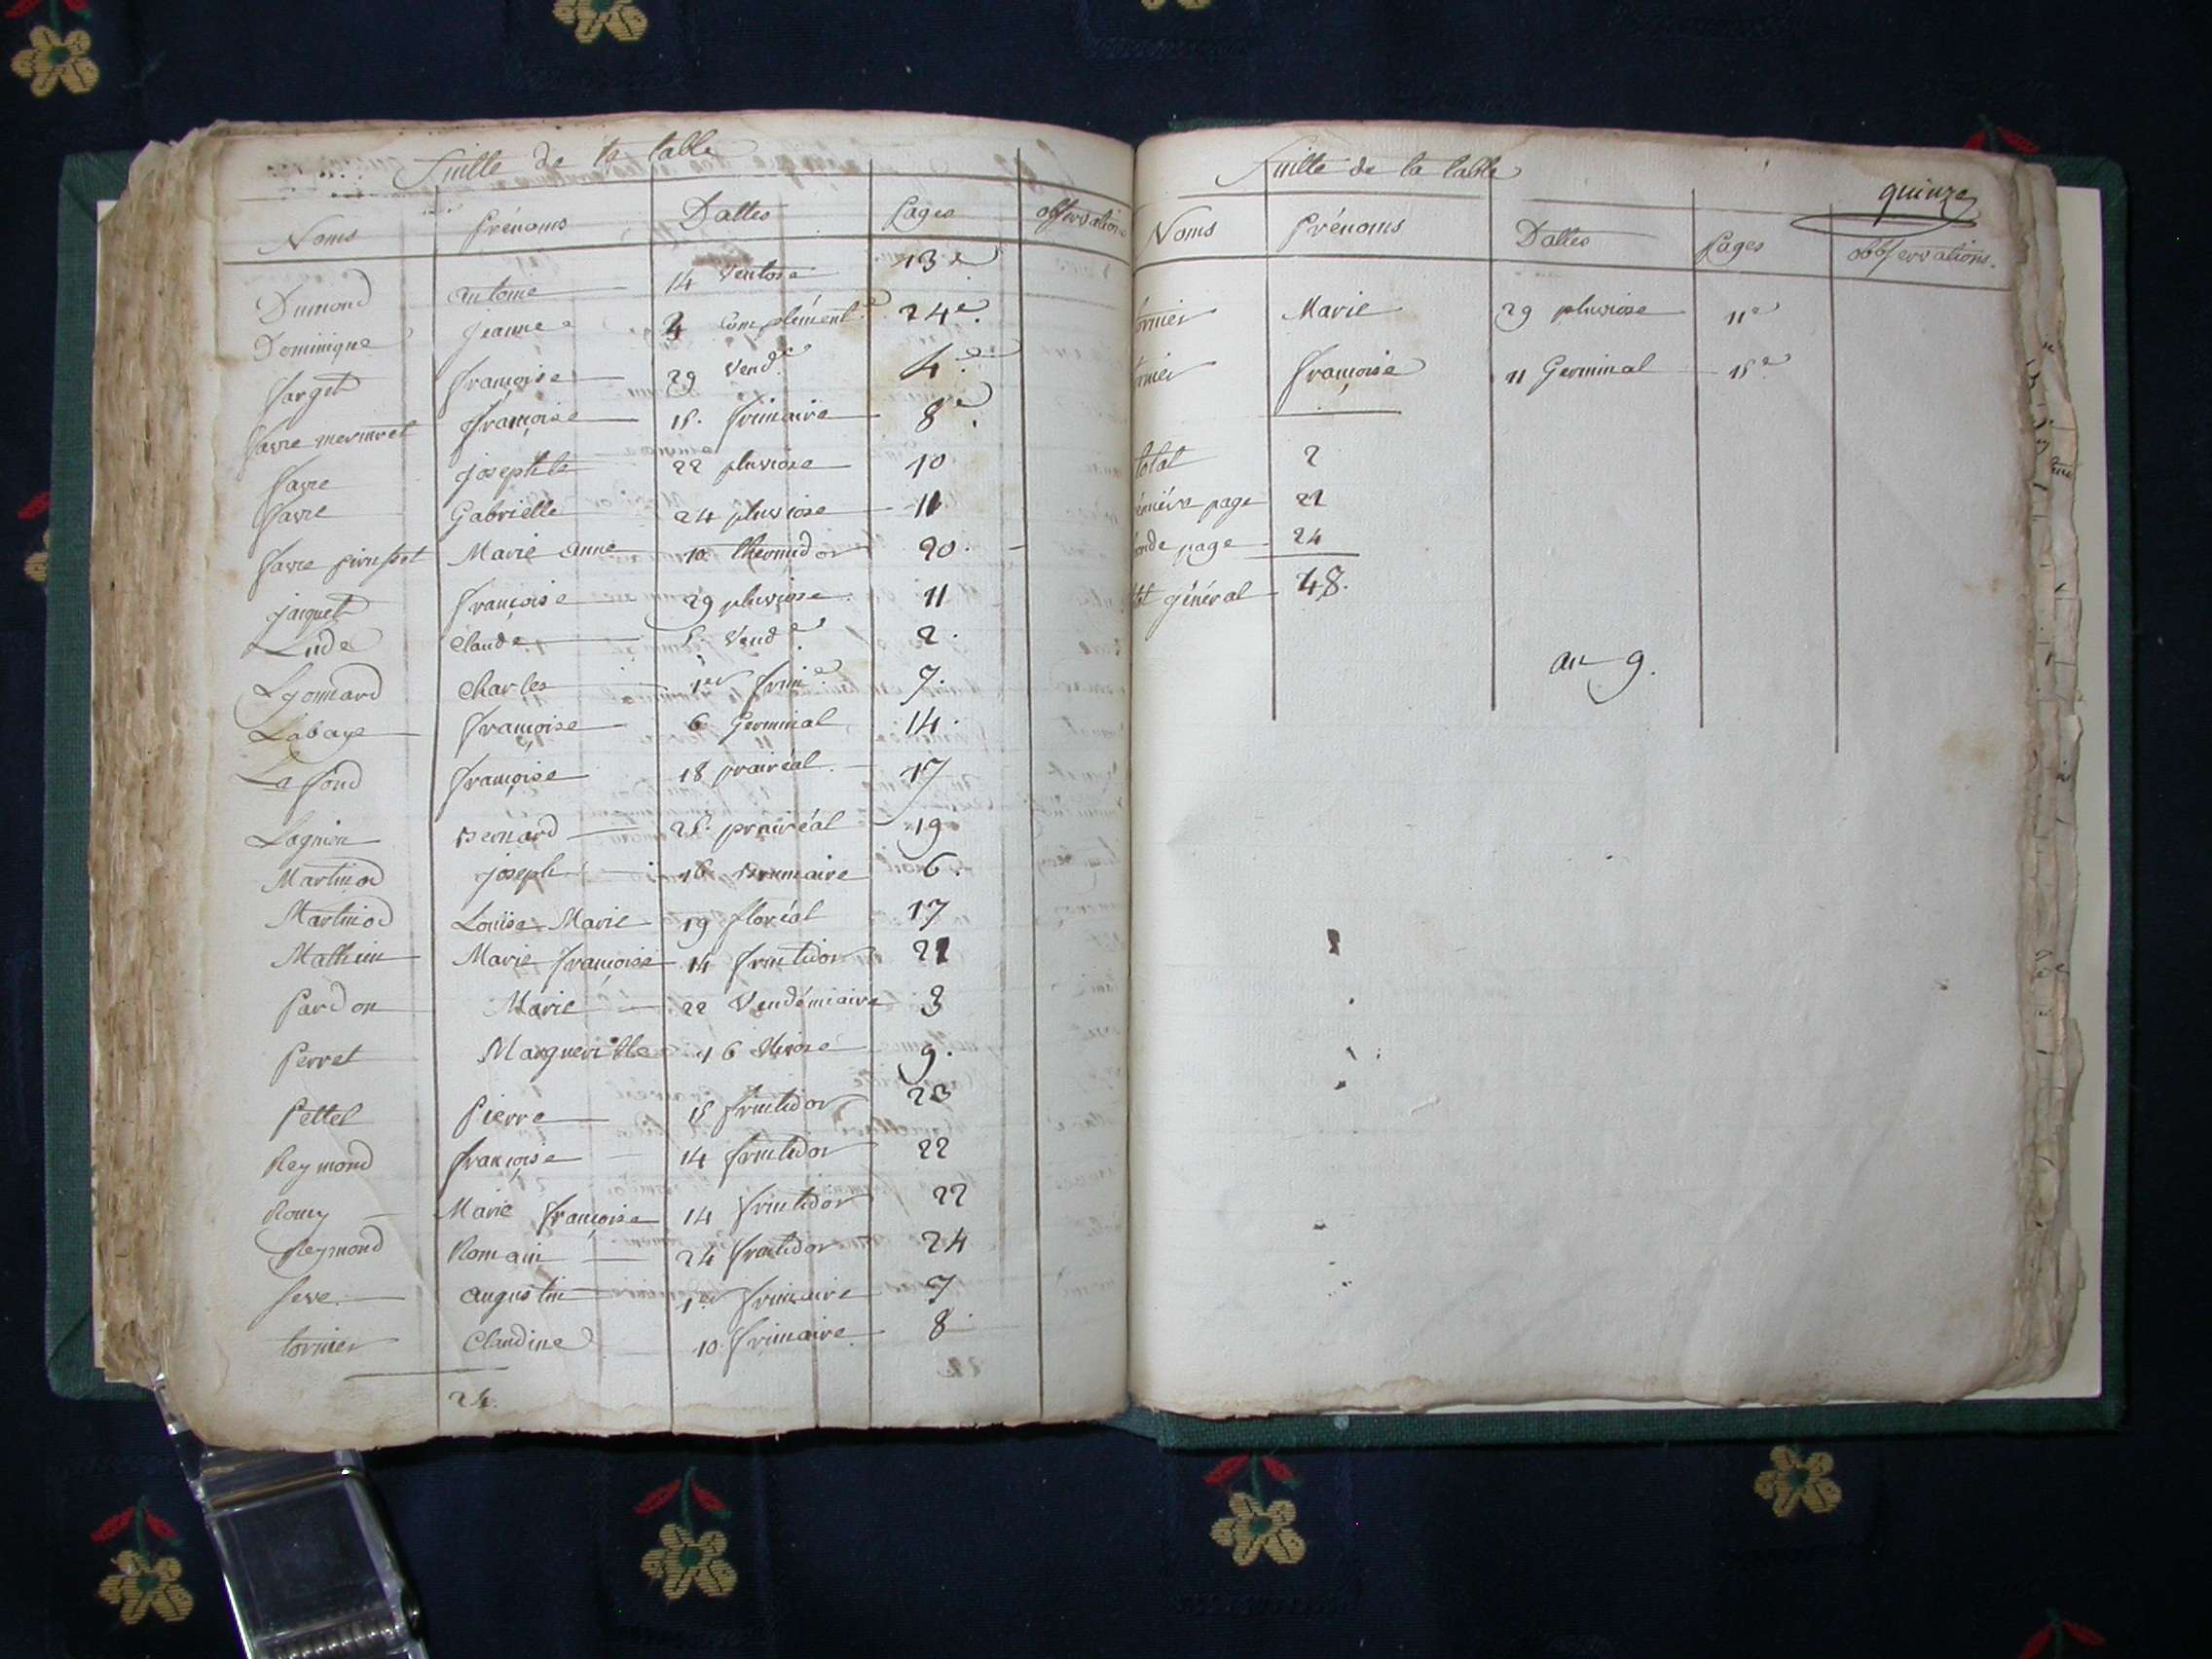 Suitte de la table
Noms Prénoms Dattes Pages observations
Dumond antoine 14 ventose 13e
Dominique jeanne 4 complément.e 24e.
farget françoise 29 vend.e 4.e
favre mermet françoise 15. frimaire 8e.
favre josephte 22 pluviose 10
favre Gabrielle 24 pluviose 11
favre Marie anne 10 thermidor 20.
jaiquet françoise 29 pluviose 11
Lude Claude 5. vend.e 2.
Lyonnard Charles 1er frim.e 7.
Labaye françoise 6 Germinal 14.
La fond françoise 18 prairéal 17
Lagnien Bernard 25. prairéal 19
Martinod joseph 16 Brumaire 6.
Martinod Louise Marie 19 floréal 17
Mathieu Marie françoise 14 fructidor 21
Pardon Marie 22 Vendémiaire 3
Perret Margueritte 16 Nivose 9.
Pettel Pierre 15 fructidor 23
Reymond françoise 14 fructidor 22
Romy Marie françoise 14 fructidor 22
Reymond Romain 24 fructidor 24
seve Augustin 1er frimaire 7
tornier Claudine 10 frimaire 8
24.
Suitte de la table
quinze
Noms Prénoms Dattes Pages observations.
ornier Marie 29 pluviose 11e
rnier françoise 11 Germinal 15e
total 2
emière page 22
onde page 24
tot général 48.
an 9.